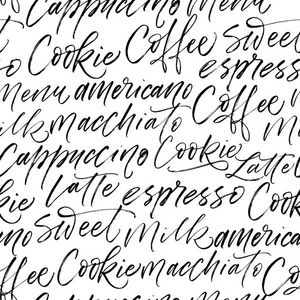 Cappuccino Menu
Cookie Coffee sweet
espresso
Menu americano
Coffee
Milk macchiato
Cappuccino Cookie
Latte
Cookie latte espresso Cookie
sweet Milk americano
Coffee Cookie macchiato Co
Cappuccino Menu